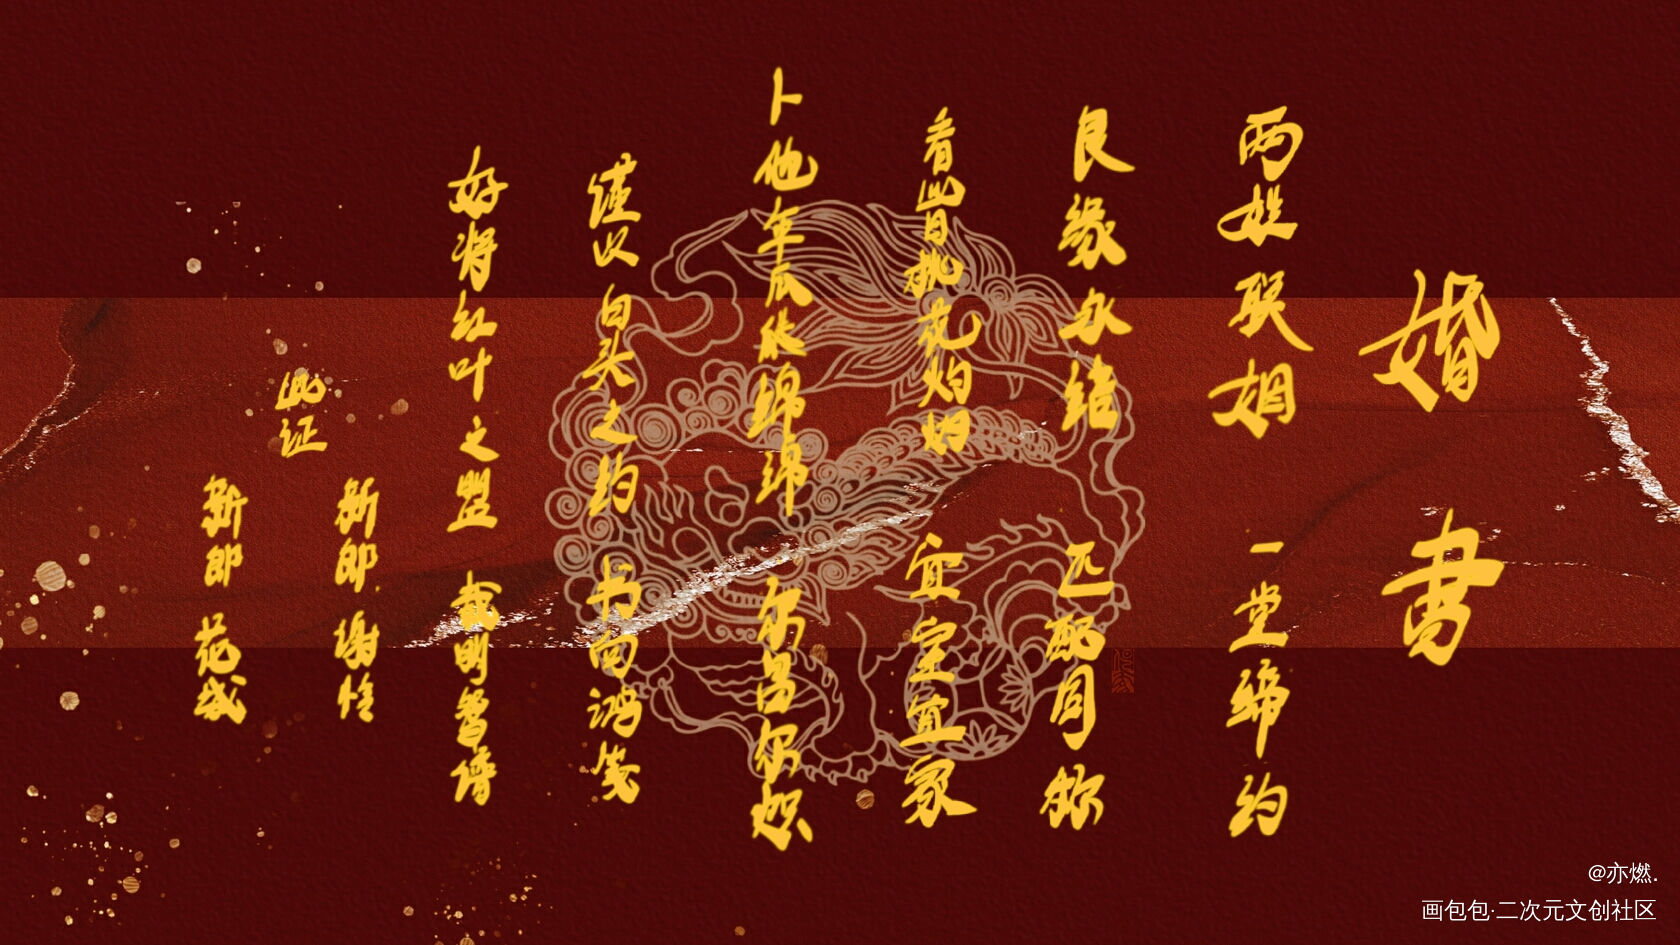 婚書
两姓联姻 一堂缔约
良缘永结 匹配同称
看此日桃花灼灼 宜室宜家
卜他年瓜瓞绵绵 尔昌尔炽
谨以白头之约 书向鸿笺
好将红叶之盟 载明鸳谱
此证
新郎 谢怜
新郎 花城
@亦燃.
画包包·二次元文创社区